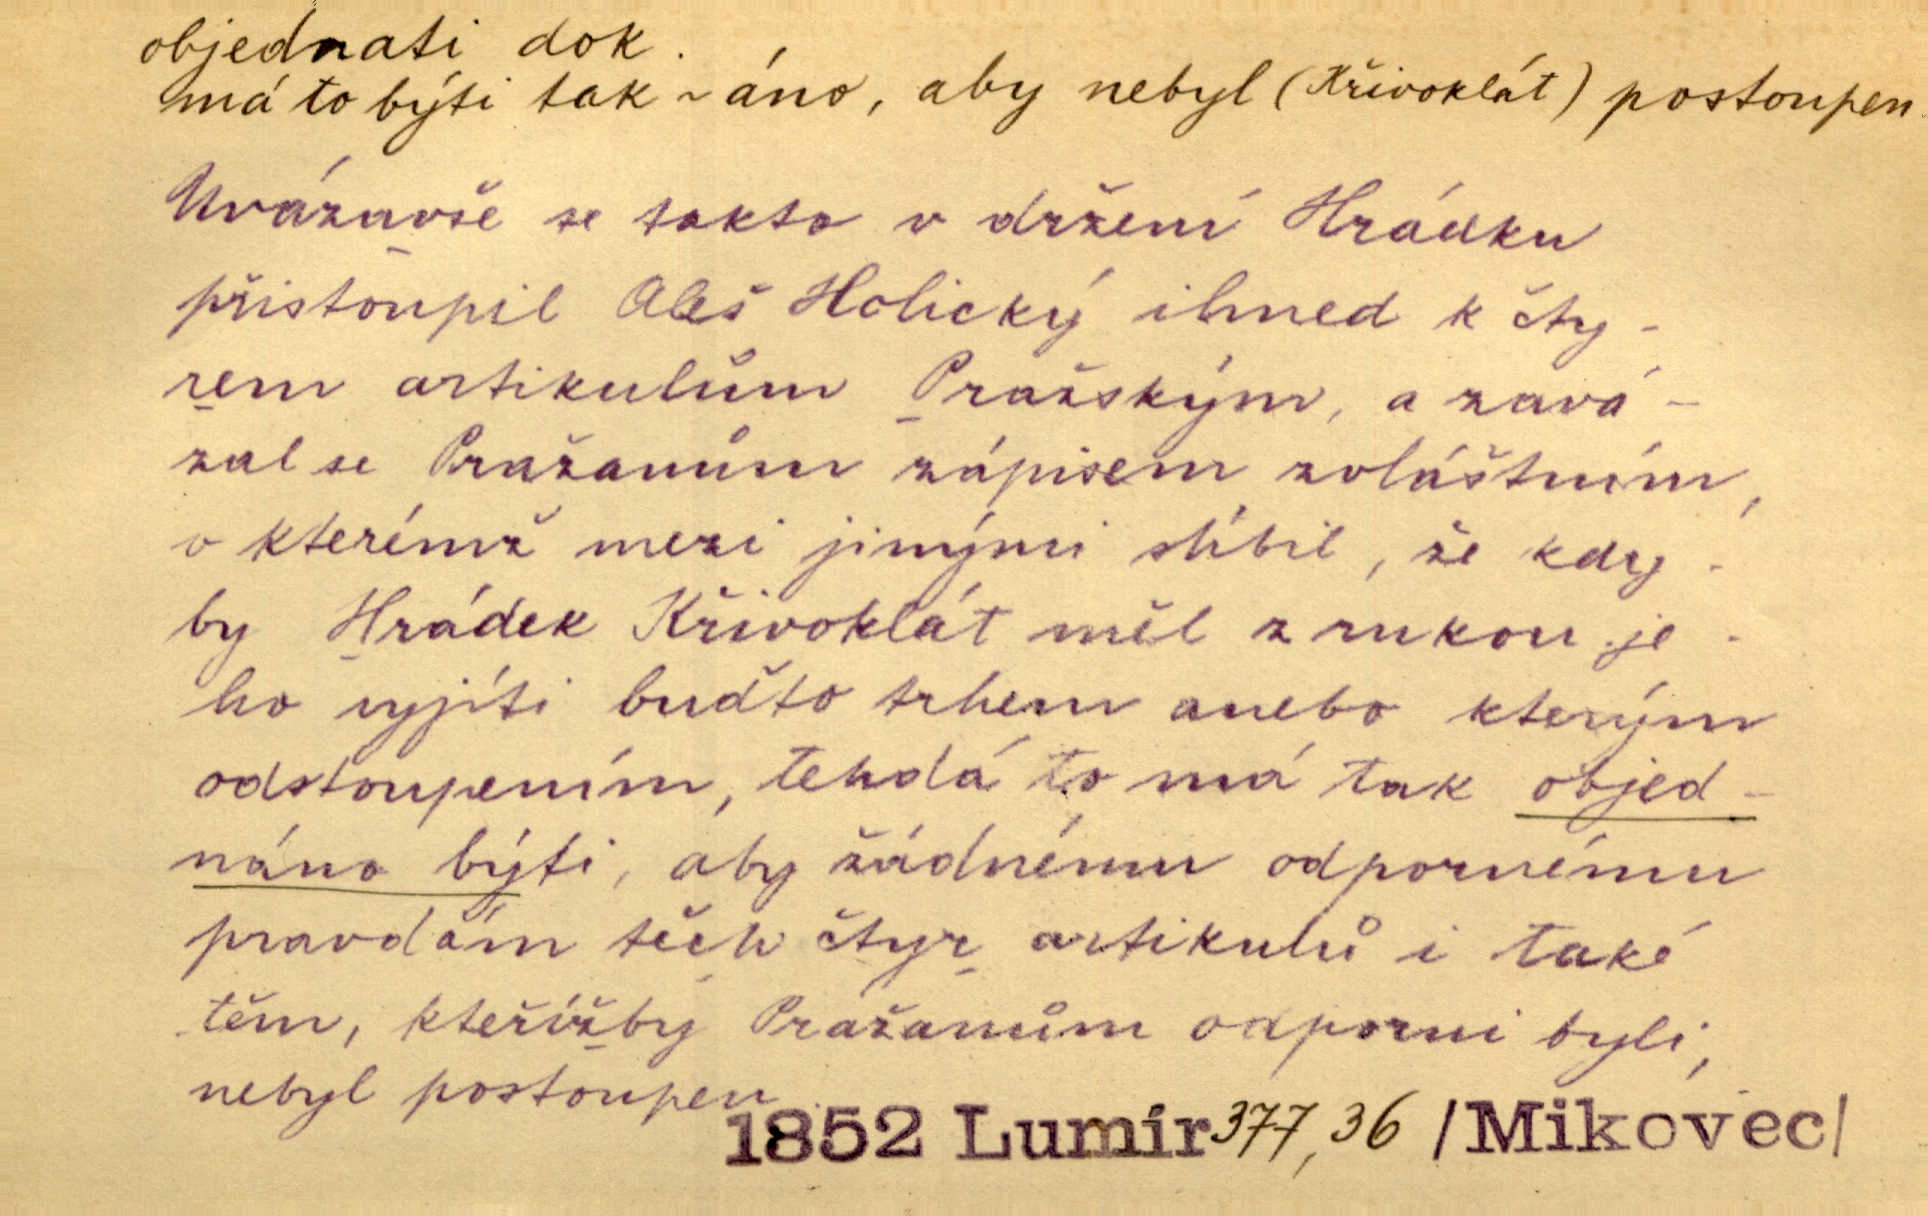 objednati dok.
má to býti tak ~ áno, aby nebyl (Křivoklát) postoupen.
Uvázavše se takto v držení Hrádku
přistoupil Aleš Holický ihned k čty-
rem artikulům Pražským, a zavá-
zal se Pražanům zápisem zvláštním,
v kterémž mezi jinými slíbil, že kdy-
by Hrádek Křivoklát měl z rukou je-
ho vyjíti buďto trhem anebo kterým
odstoupením, tehdá to má tak objed-
náno býti, aby žádnému odpornému
pravdám těch čtyr artikulů i také
těm, kteřížby Pražanům odporni byli,
nebyl postoupen.
1852 Lumír 377,36 /Mikovec/